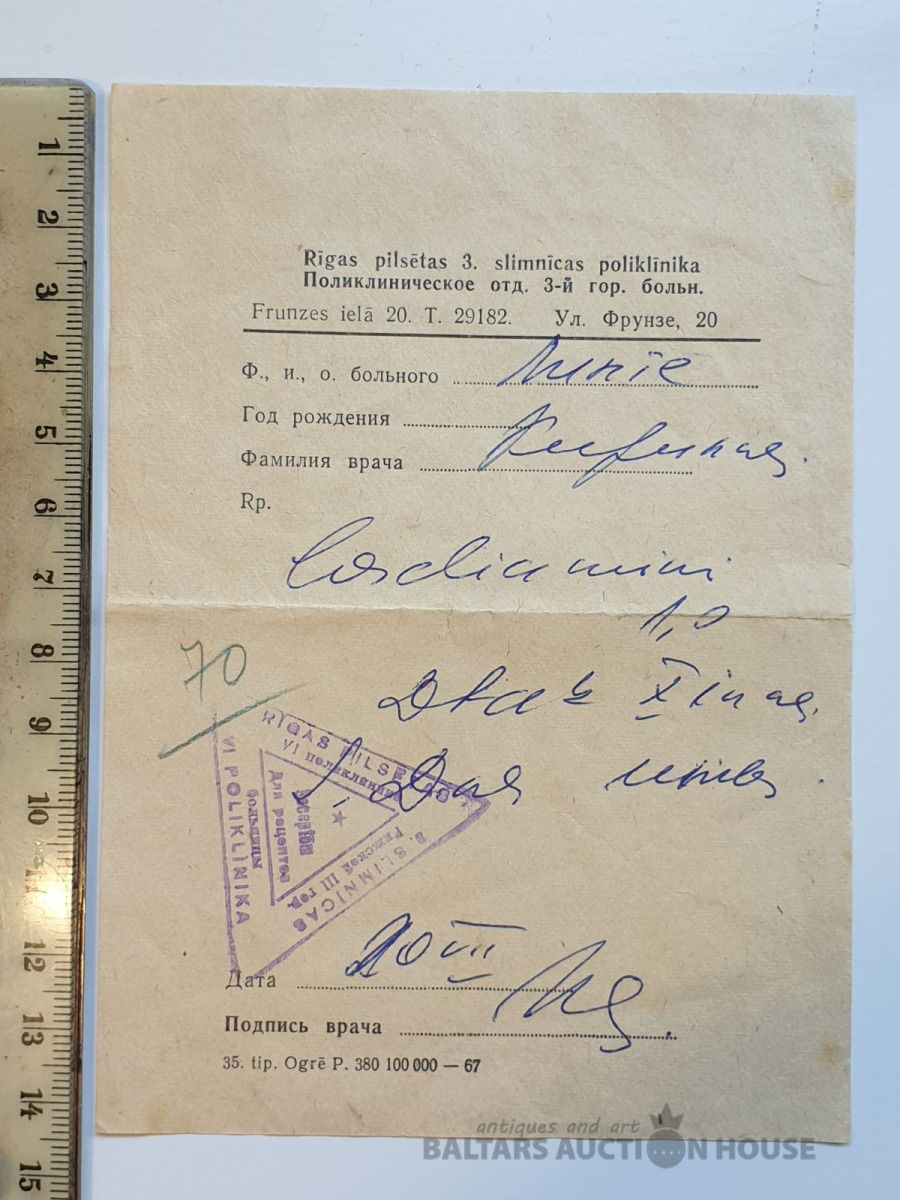 Rīgas pilsētas 3. slimnīcas poliklīnika
Поликлиническое отд. 3-й гор. больн.
Frunzes ielā 20. T. 29182. Ул. Фрунзе, 20
Ф., и., о. больного
Год рождения
Фамилия врача
Rp.
Cordiamini
1,0
X in
S.
70
RĪGAS PILSĒTAS
3. SLIMNĪCAS
VI POLIKLĪNIKA
VI поликлиника
Рижской III гор.
больницы
Для рецептов
receptēm
20 VII
Дата
Подпись врача
35. tip. Ogrē P. 380 100 000 — 67
1
2
3
4
5
6
7
8
9
10
11
12
13
14
15
antiques and art
BALTARS AUCTION HOUSE